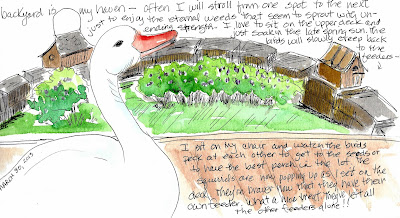 backyard is my haven - often I will stroll from one spot to the next
just to enjoy the eternal weeds that seem to sprout with un-
ending strength. I love to sit on the upper area and
just soak in the late spring sun. The
birds will slowly creep back
to the
feeders -
I sit on my chair and watch the birds
peck at each other to get to the seeds or
to have the best perch in the lot. The
squirrels are hung popping up as I set on the
deck. They're braver now that they have their
own feeder. What a nice treat they've left all
the other feeders alone!!
March 20, 2003